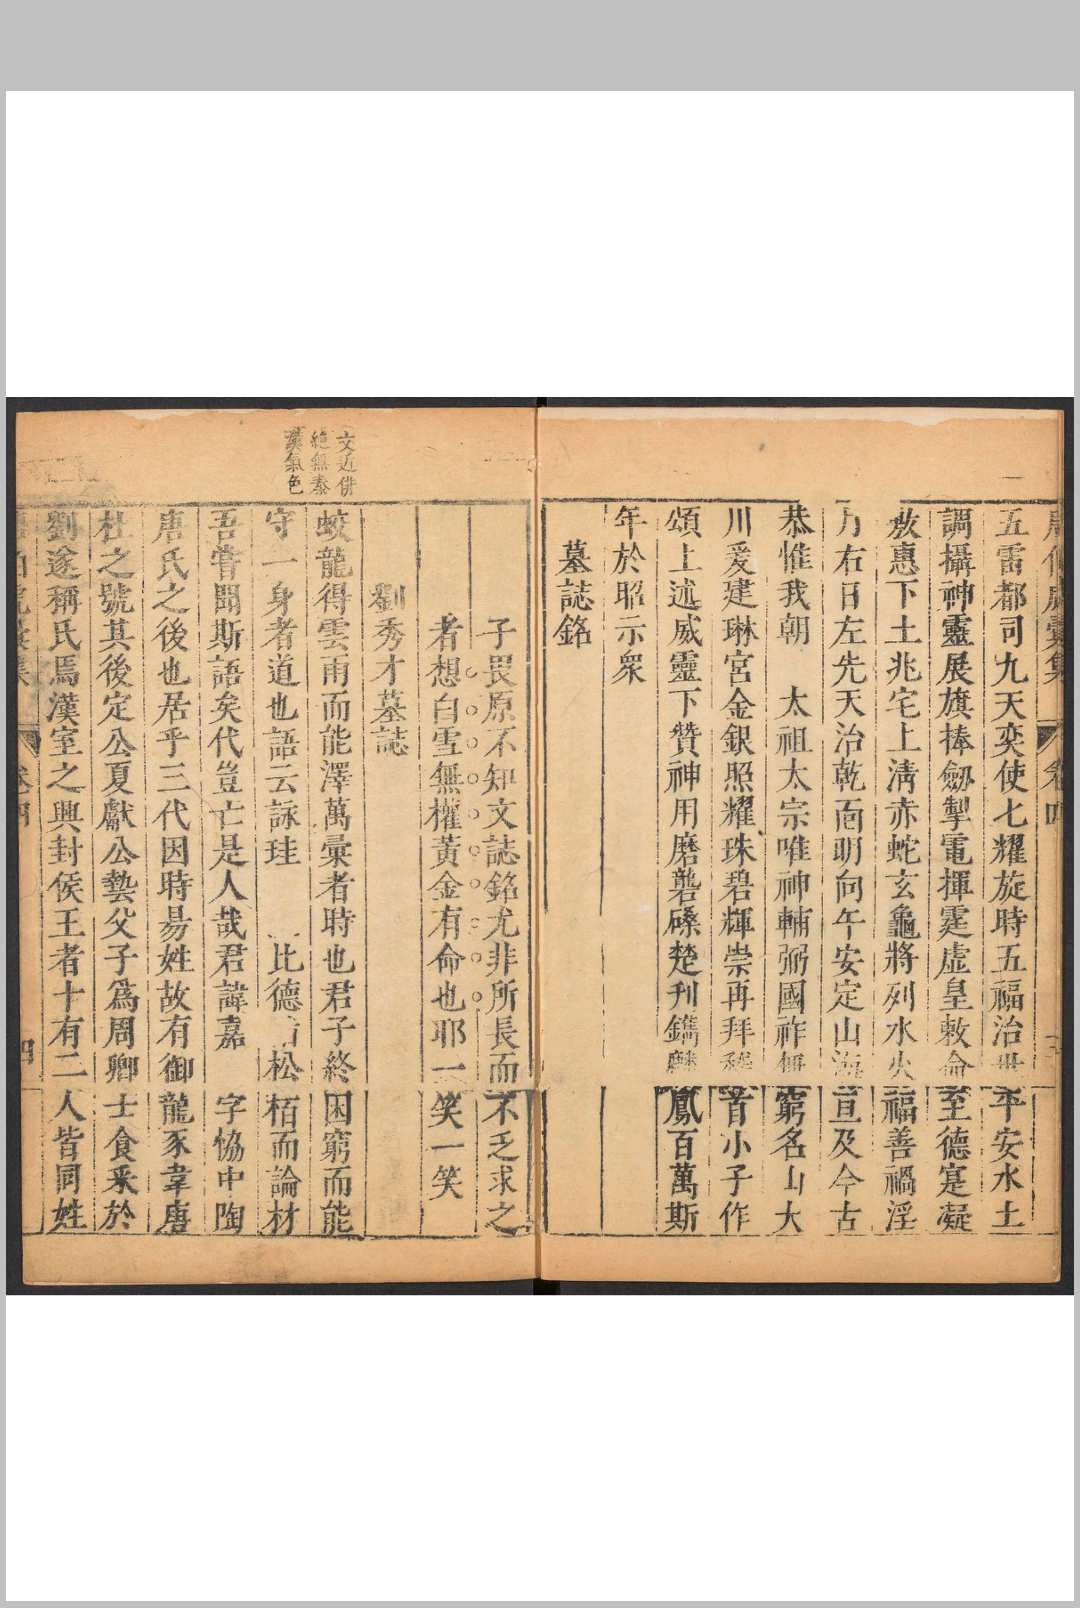 五雷都司九天奕使七耀旋時五福治世平安水土
調攝神靈展旗捧劔掣電揮霆虛皇敕命至德寔凝
敷惠下土兆宅上淸赤蛇玄龜將列水火福善禍淫
月右日左先天治乾面明向午安定山海亘及今古
恭惟我朝 太祖太宗唯神輔弼國祚無窮名山大
川爰建琳宮金銀照耀珠碧輝崇再拜稽首小子作
頌上述威靈下贊神用磨礱磉楚刋鐫麟鳳百萬斯
年於昭示衆
墓誌銘
子畏原不知文誌銘尤非所長而不乏求之
者想白雪無權黃金有命也耶一笑一笑
劉秀才墓誌
文近俳
絶無秦
漢氣色
蛟龍得雲雨而能澤萬彙者時也君子終困窮而能
守一身者道也語云詠珪 比德 松栢而論材
吾嘗聞斯語矣代豈亡是人哉君諱嘉 字恊中陶
唐氏之後也居乎三代因時易姓故有御龍豕韋唐
杜之號其後定公夏獻公摯父子爲周卿士食采於
劉遂稱氏焉漢室之興封侯王者十有二人皆同姓
卷四
四